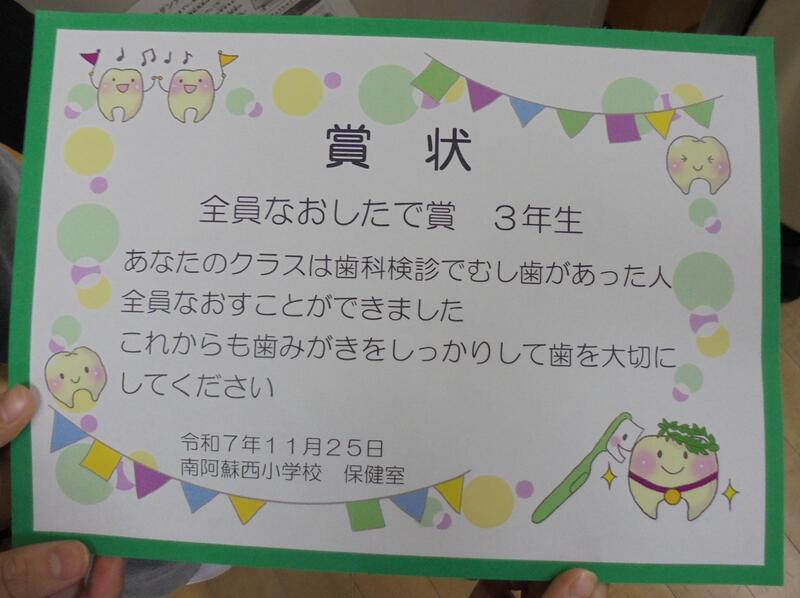 賞 状
全員なおしたで賞 3年生
あなたのクラスは歯科検診でむし歯があった人
全員なおすことができました
これからも歯みがきをしっかりして歯を大切に
してください
令和7年11月25日
南阿蘇西小学校 保健室